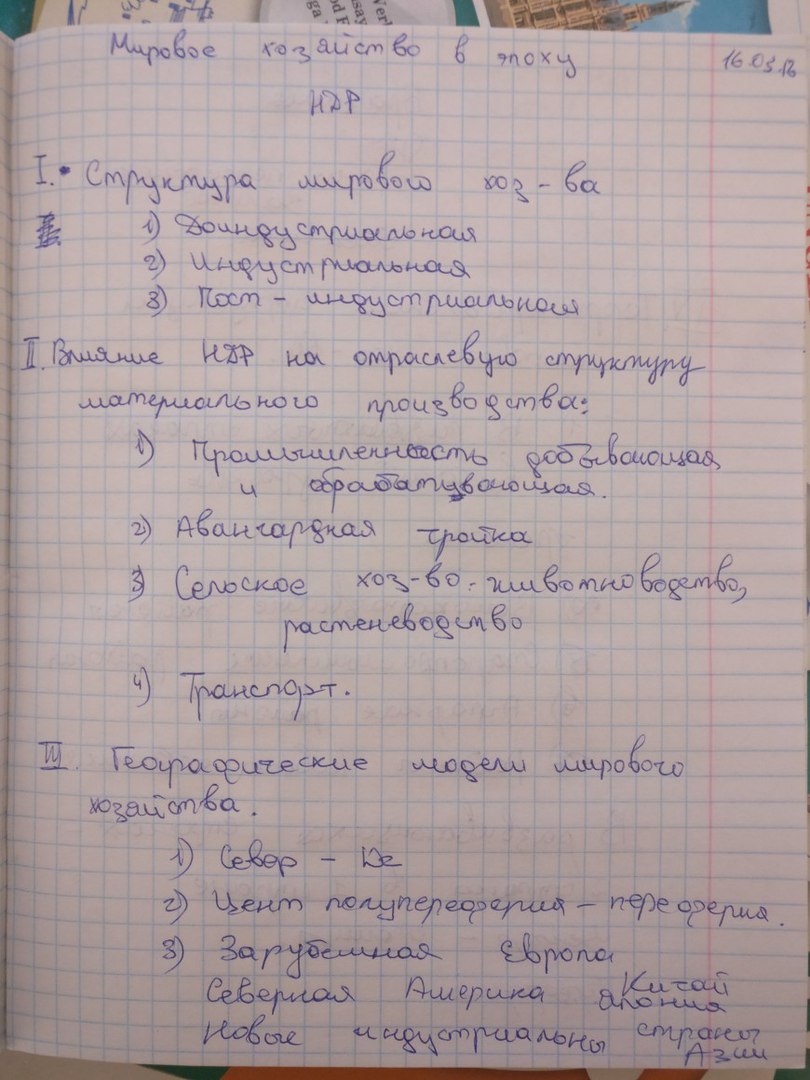 Мировое хозяйство в эпоху
16.03.
НТР
I. Структура мирового хоз-ва
1) Доиндустриальная
2) Индустриальная
3) Пост-индустриальная
II. Влияние НТР на отраслевую структуру
материального производства:
1) Промышленность добывающая
и обрабатывающая.
2) Авангардная тройка
3) Сельское хоз-во: животноводство,
растеневодство
4) Транспорт.
III. Географические модели мирового
хозяйства.
1) Север - Юг
2) Цент полупереферия - переферия.
3) Зарубежная Европа
Северная Америка Китай Япония
Новые индустриальны страны
Азии